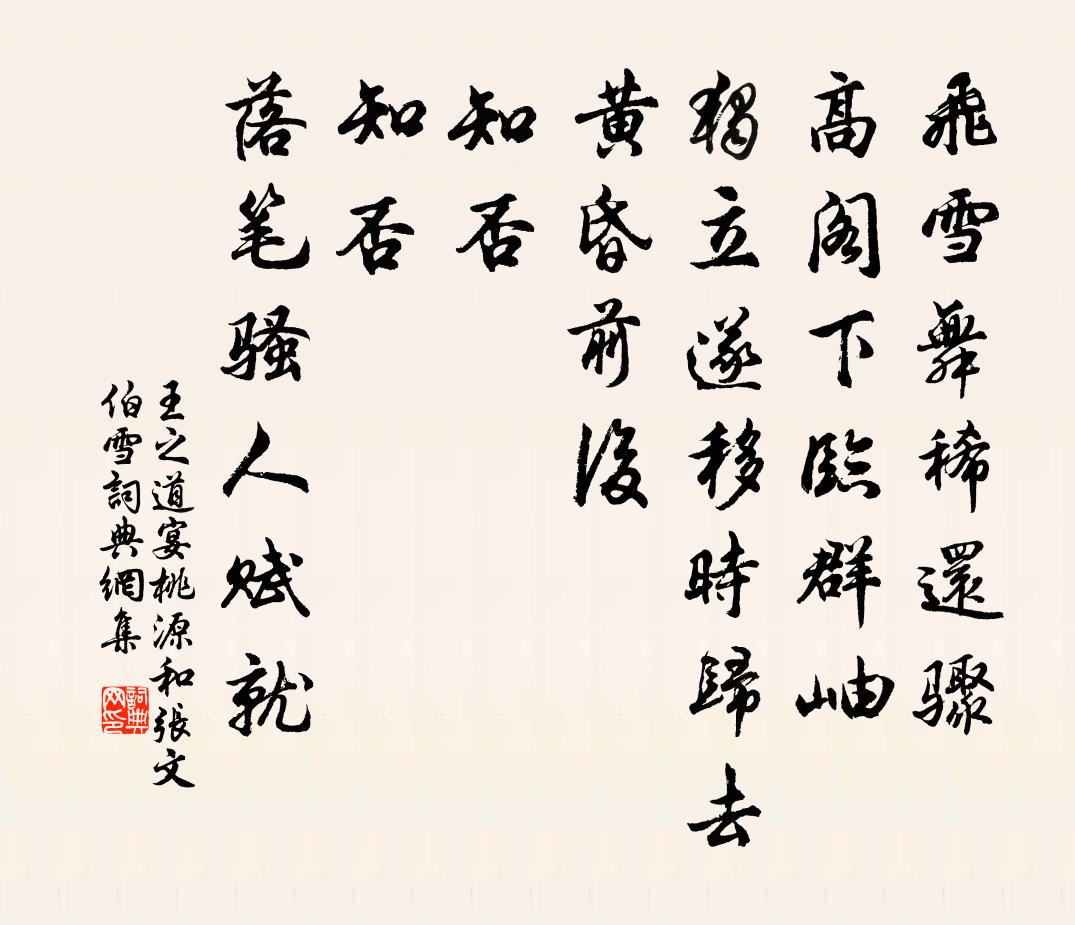 飛雪舞稀還驟
高阁下臨群岫
獨立遂移時歸去
黄昏前後
知否
知否
落笔骚人赋就
王之道宴桃源和張文
伯雪詞典網集
詞典
网印